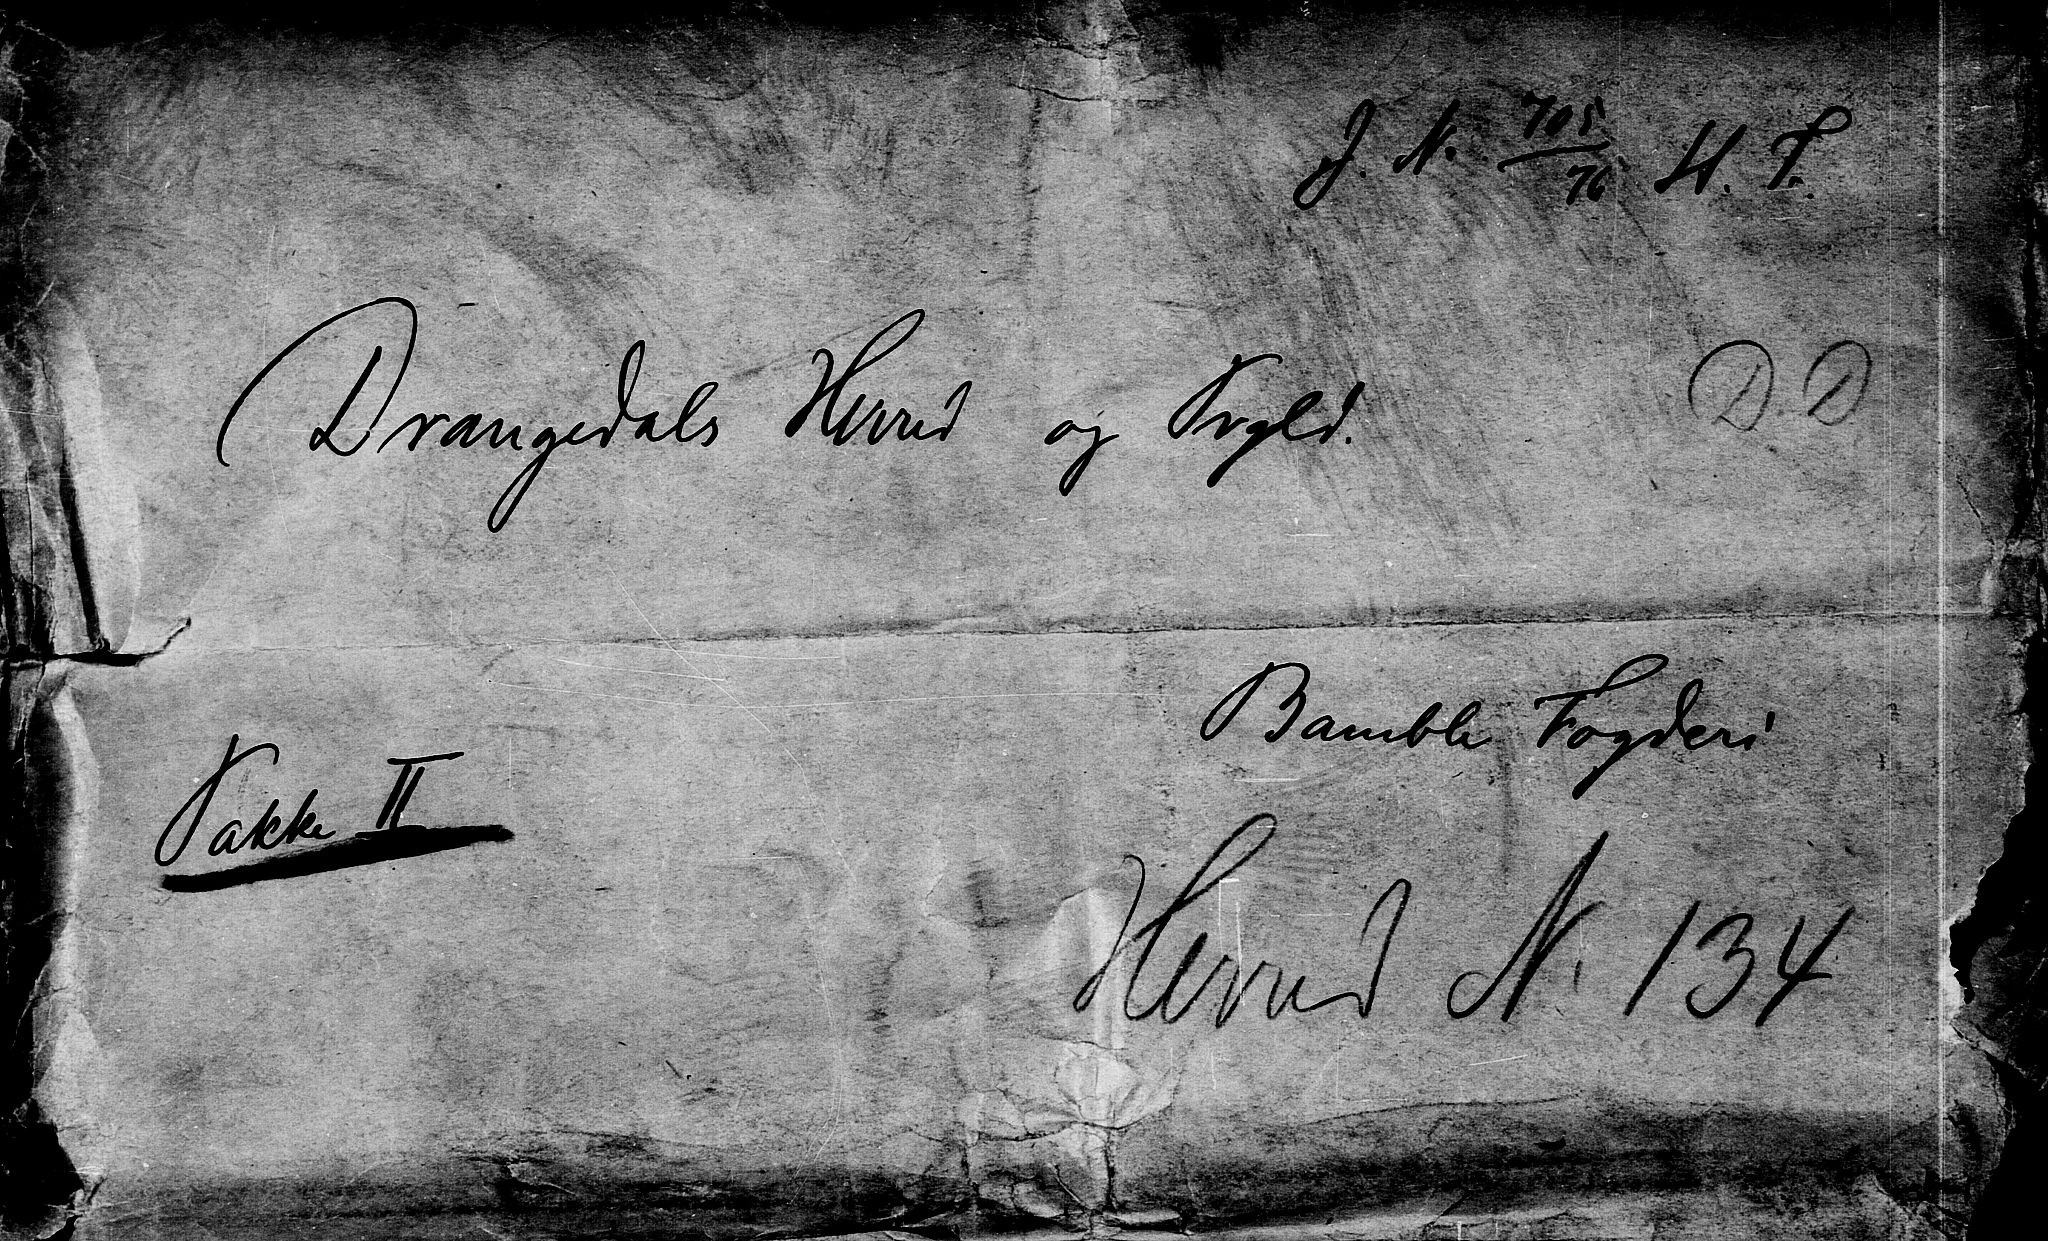 J. N. 705/76 H. F.
Drangedals Herred og Prgld. D. D
Bamble Fogderi
Pakke II
Herred N. 134